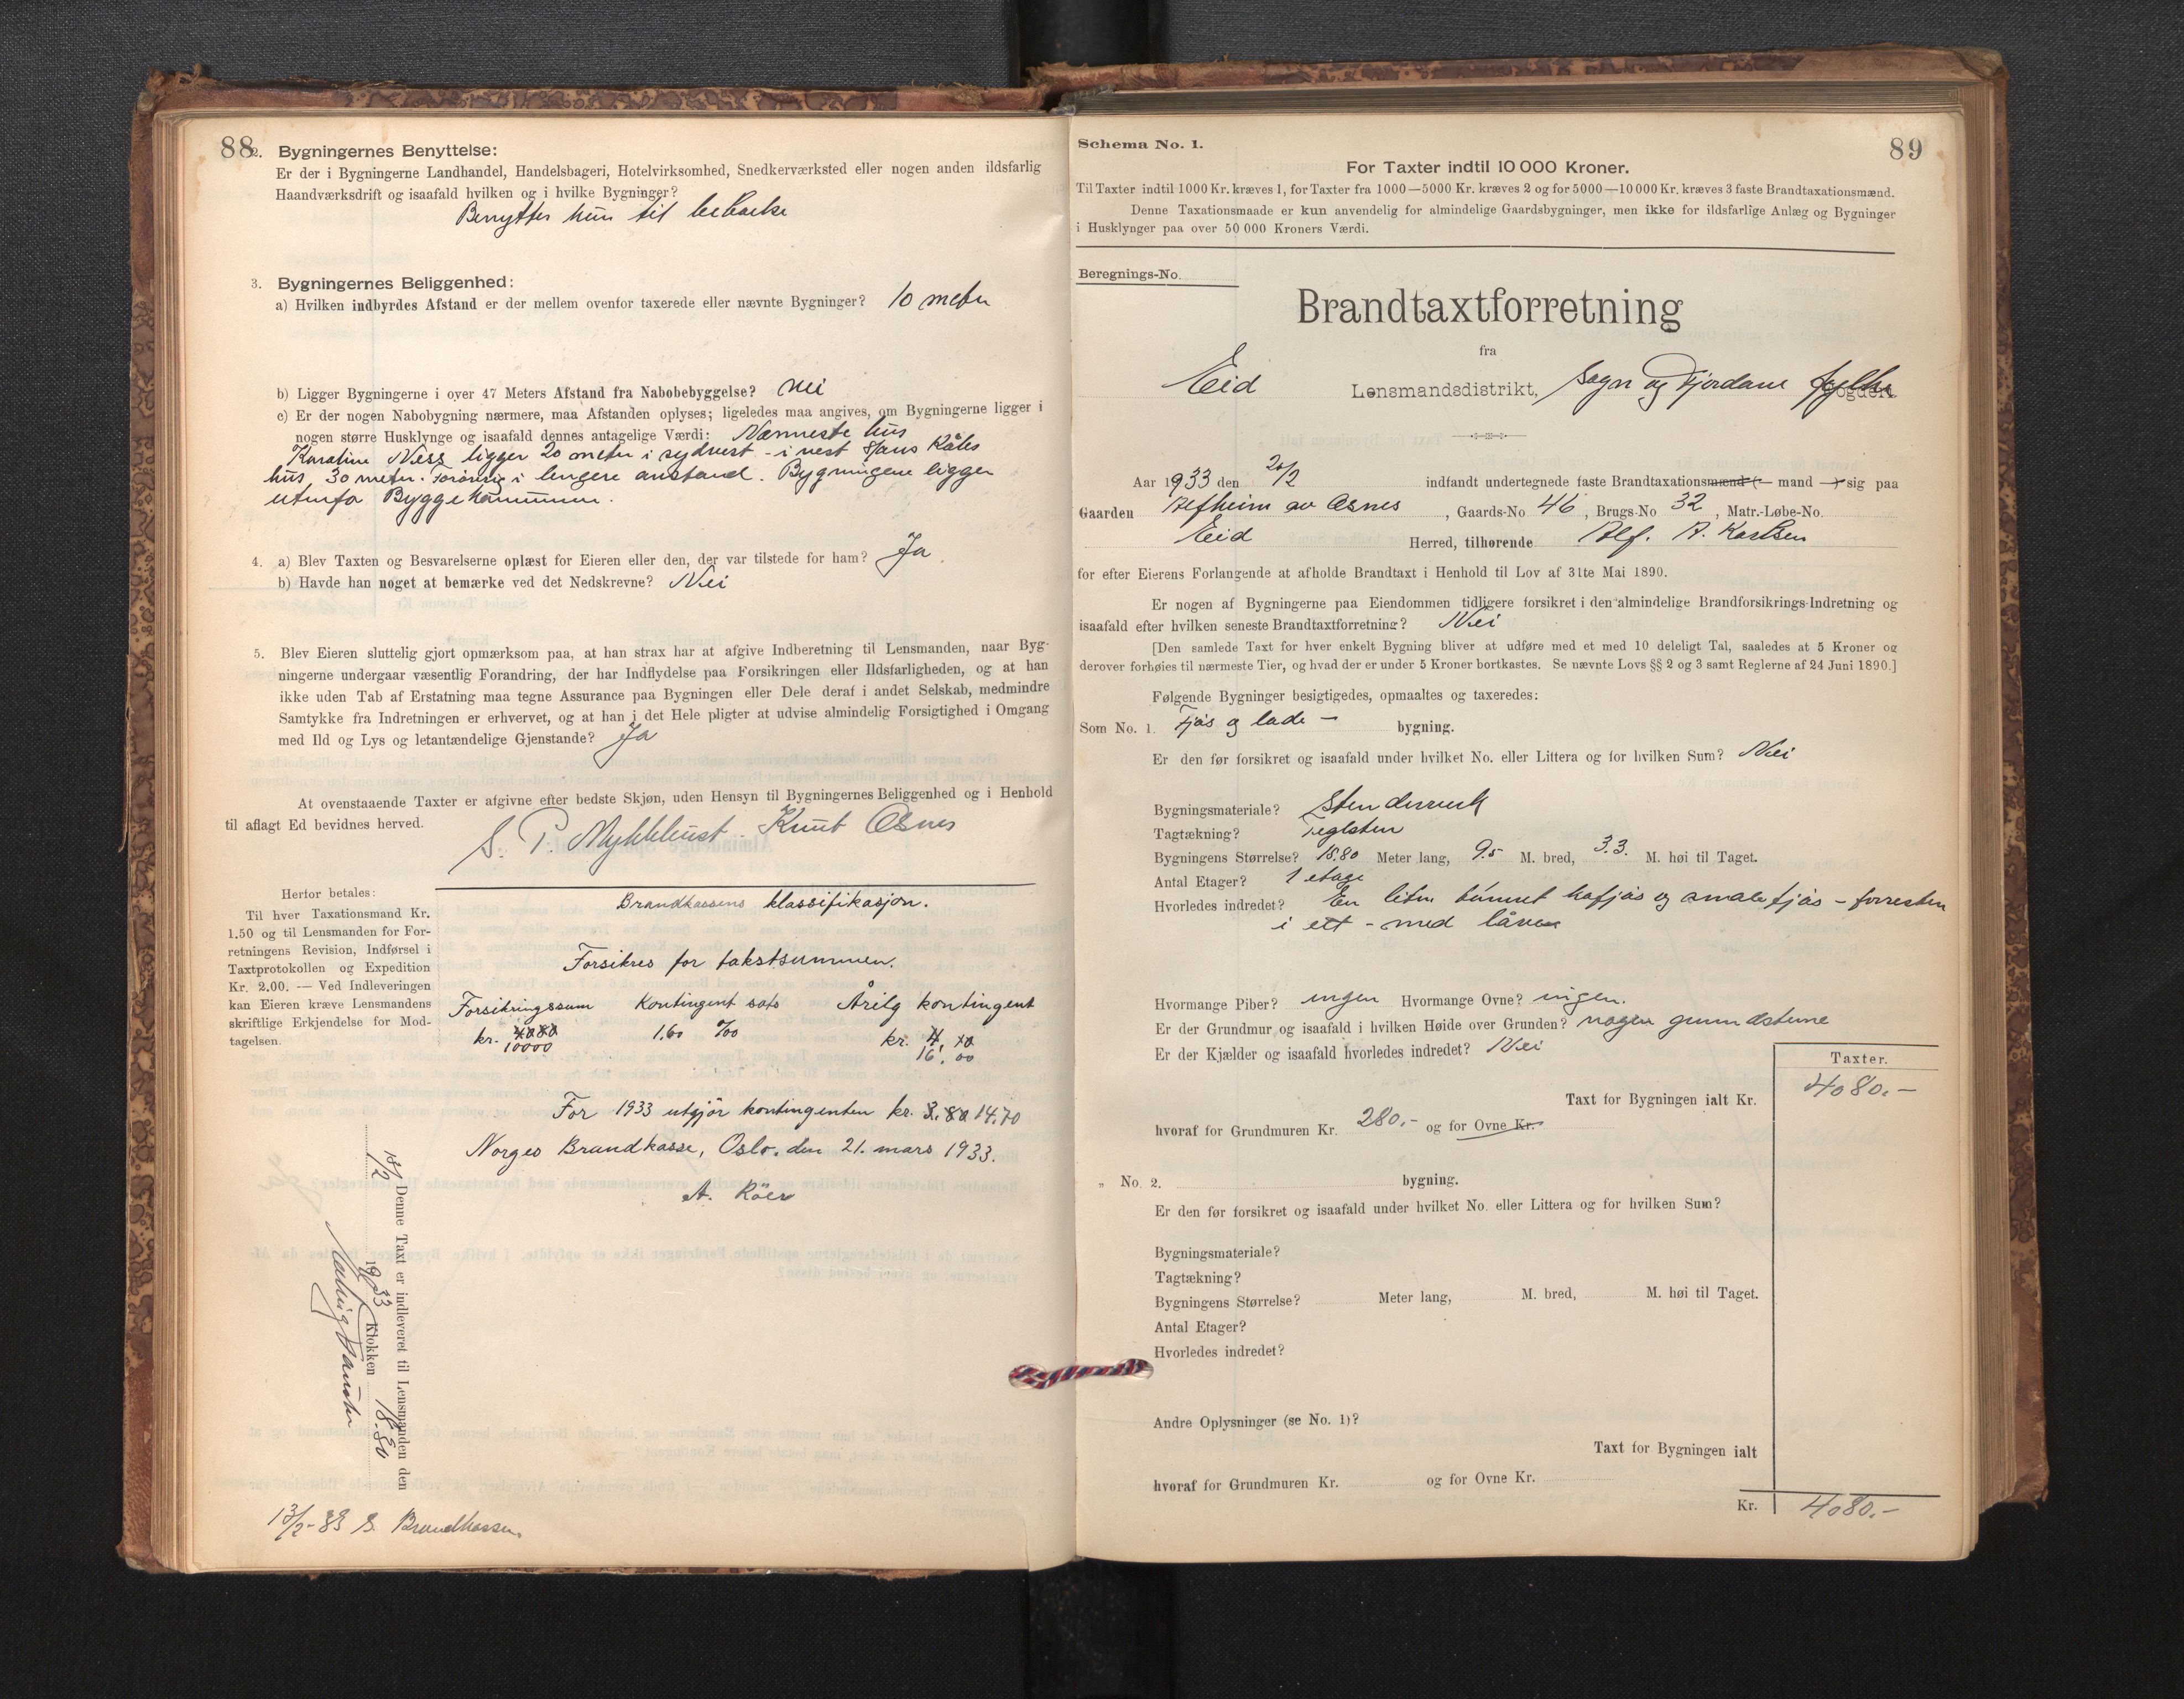 88
2. Bygningernes Benyttelse:
Er der i Bygningerne Landhandel, Handelsbageri, Hotelvirksomhed, Snedkerværksted eller nogen anden ildsfarlig
Haandværksdrift og isaafald hvilken og i hvilke Bygninger?
Benyttes kun til beboelse
3. Bygningernes Beliggenhed:
a) Hvilken indbyrdes Afstand er der mellem ovenfor taxerede eller nævnte Bygninger? 10 meter
b) Ligger Bygningerne i over 47 Meters Afstand fra Nabobebyggelse? nei
c) Er der nogen Nabobygning nærmere, maa Afstanden oplyses; ligeledes maa angives, om Bygningerne ligger i
nogen større Husklynge og isaafald dennes antagelige Værdi: Nærmeste hus
Karoline Ness ligger 20 meter i sydvest - i vest Hans
hus 30 meter. Forøvrig i lengere avstand. Bygningene ligger
utenfor Byggekommunen.
4. a) Blev Taxten og Besvarelserne oplæst for Eieren eller den, der var tilstede for ham? Ja.
b) Havde han noget at bemærke ved det Nedskrevne? Nei
5. Blev Eieren sluttelig gjort opmærksom paa, at han strax har at afgive Indberetning til Lensmanden, naar Byg-
ningerne undergaar væsentlig Forandring, der har Indflydelse paa Forsikringen eller Ildsfarligheden, og at han
ikke uden Tab af Erstatning maa tegne Assurance paa Bygningen eller Dele deraf i andet Selskab, medmindre
Samtykke fra Indretningen er erhvervet, og at han i det Hele pligter at udvise almindelig Forsigtighed i Omgang
med Ild og Lys og letantændelige Gjenstande? Ja
At ovenstaaende Taxter er afgivne efter bedste Skjøn, uden Hensyn til Bygningernes Beliggenhed og i Henhold
til aflagt Ed bevidnes herved.
S. P. Myklebust. Knut Osnes
Herfor betales:
Til hver Taxationsmand Kr.
1.50 og til Lensmanden for For-
retningens Revision, Indførsel i
Taxtprotokollen og Expedition
Kr. 2.00. — Ved Indleveringen
kan Eieren kræve Lensmandens
skriftlige Erkjendelse for Mod-
tagelsen.
Brandkassens klassifikasjon.
Forsikres for takstsummen.
Forsikringssum Kontingent sats Årilg kontingent
kr. 10000 1.60 ‰ kr. 16.00
For 1933 utgjør kontingenten kr. 14.70
Norges Brandkasse, Oslo, den 21. mars 1933.
A. Röer
Denne Taxt er indleveret til Lensmanden den
1933 Klokken 18.30
13/2-33 S. Brandkassen.
89
Schema No. 1.
For Taxter indtil 10 000 Kroner.
Til Taxter indtil 1000 Kr. kræves 1, for Taxter fra 1000—5000 Kr. kræves 2 og for 5000—10 000 Kr. kræves 3 faste Brandtaxationsmænd.
Denne Taxationsmaade er kun anvendelig for almindelige Gaardsbygninger, men ikke for ildsfarlige Anlæg og Bygninger
i Husklynger paa over 50 000 Kroners Værdi.
Beregnings-No.
Brandtaxtforretning
fra
Eid Lensmandsdistrikt, Sogn og Fjordane fylke
Aar 1933 den 20/2 indfandt undertegnede faste Brandtaxationsmænd (— mand —) sig paa
Gaarden Alfheim av Osnes, Gaards-No 46, Brugs-No 32, Matr.-Løbe-No.
Eid Herred, tilhørende Alf. A. Karlsen
for efter Eierens Forlangende at afholde Brandtaxt i Henhold til Lov af 31te Mai 1890.
Er nogen af Bygningerne paa Eiendommen tidligere forsikret i den almindelige Brandforsikrings-Indretning og
isaafald efter hvilken seneste Brandtaxtforretning? Nei
[Den samlede Taxt for hver enkelt Bygning bliver at udføre med et med 10 deleligt Tal, saaledes at 5 Kroner og
derover forhøies til nærmeste Tier, og hvad der er under 5 Kroner bortkastes. Se nævnte Lovs §§ 2 og 3 samt Reglerne af 24 Juni 1890.]
Følgende Bygninger besigtigedes, opmaaltes og taxeredes:
Som No. 1. Fjøs og lade — bygning.
Er den før forsikret og isaafald under hvilket No. eller Littera og for hvilken Sum? Nei
Bygningsmateriale? Stenderverk
Tagtækning? Teglsten
Bygningens Størrelse? 15.80 Meter lang, 9.5 M. bred, 3.3. M. høi til Taget.
Antal Etager? 1 etage
Hvorledes indredet? En liten tømret kufjøs og smalefjøs - forresten
i ett - med låven
Hvormange Piber? ingen Hvormange Ovne? ingen.
Er der Grundmur og isaafald i hvilken Høide over Grunden? nogen grundstene
Er der Kjælder og isaafald hvorledes indredet? Nei
Taxter.
Taxt for Bygningen ialt Kr. 4080.-
hvoraf for Grundmuren Kr. 280.- og for Ovne Kr.
„ No. 2. bygning.
Er den før forsikret og isaafald under hvilket No. eller Littera og for hvilken Sum?
Bygningsmateriale?
Tagtækning?
Bygningens Størrelse? Meter lang, M. bred, M. høi til Taget.
Antal Etager?
Hvorledes indredet?
Andre Oplysninger (se No. 1)?
Taxt for Bygningen ialt
hvoraf for Grundmuren Kr. og for Ovne Kr.
Kr. 4080.-